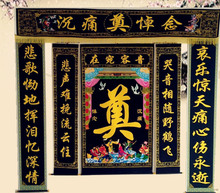 沉痛奠悼念
音容宛在
哀乐惊天痛心伤永逝
悲歌恸地挥泪忆深情
哭音相随野鹤飞
悲声难挽流云住
奠